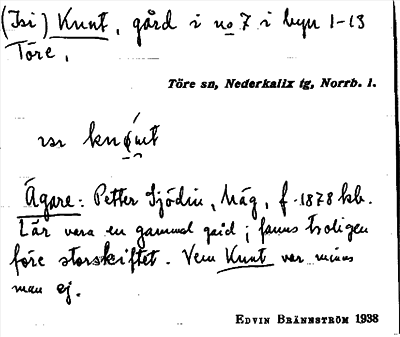 (Isi) Kunt, gård i no 7 i byn 1-13
Töre,
Töre sn, Nederkalix tg, Norrb. l.
Ägare: Petter Sjödin, Våg, f. 1878 hb.
Lär vara en gammal gård; fanns troligen
före storskiftet. Vem Kunt var minns
man ej.
EDVIN BRÄNNSTRÖM 1938